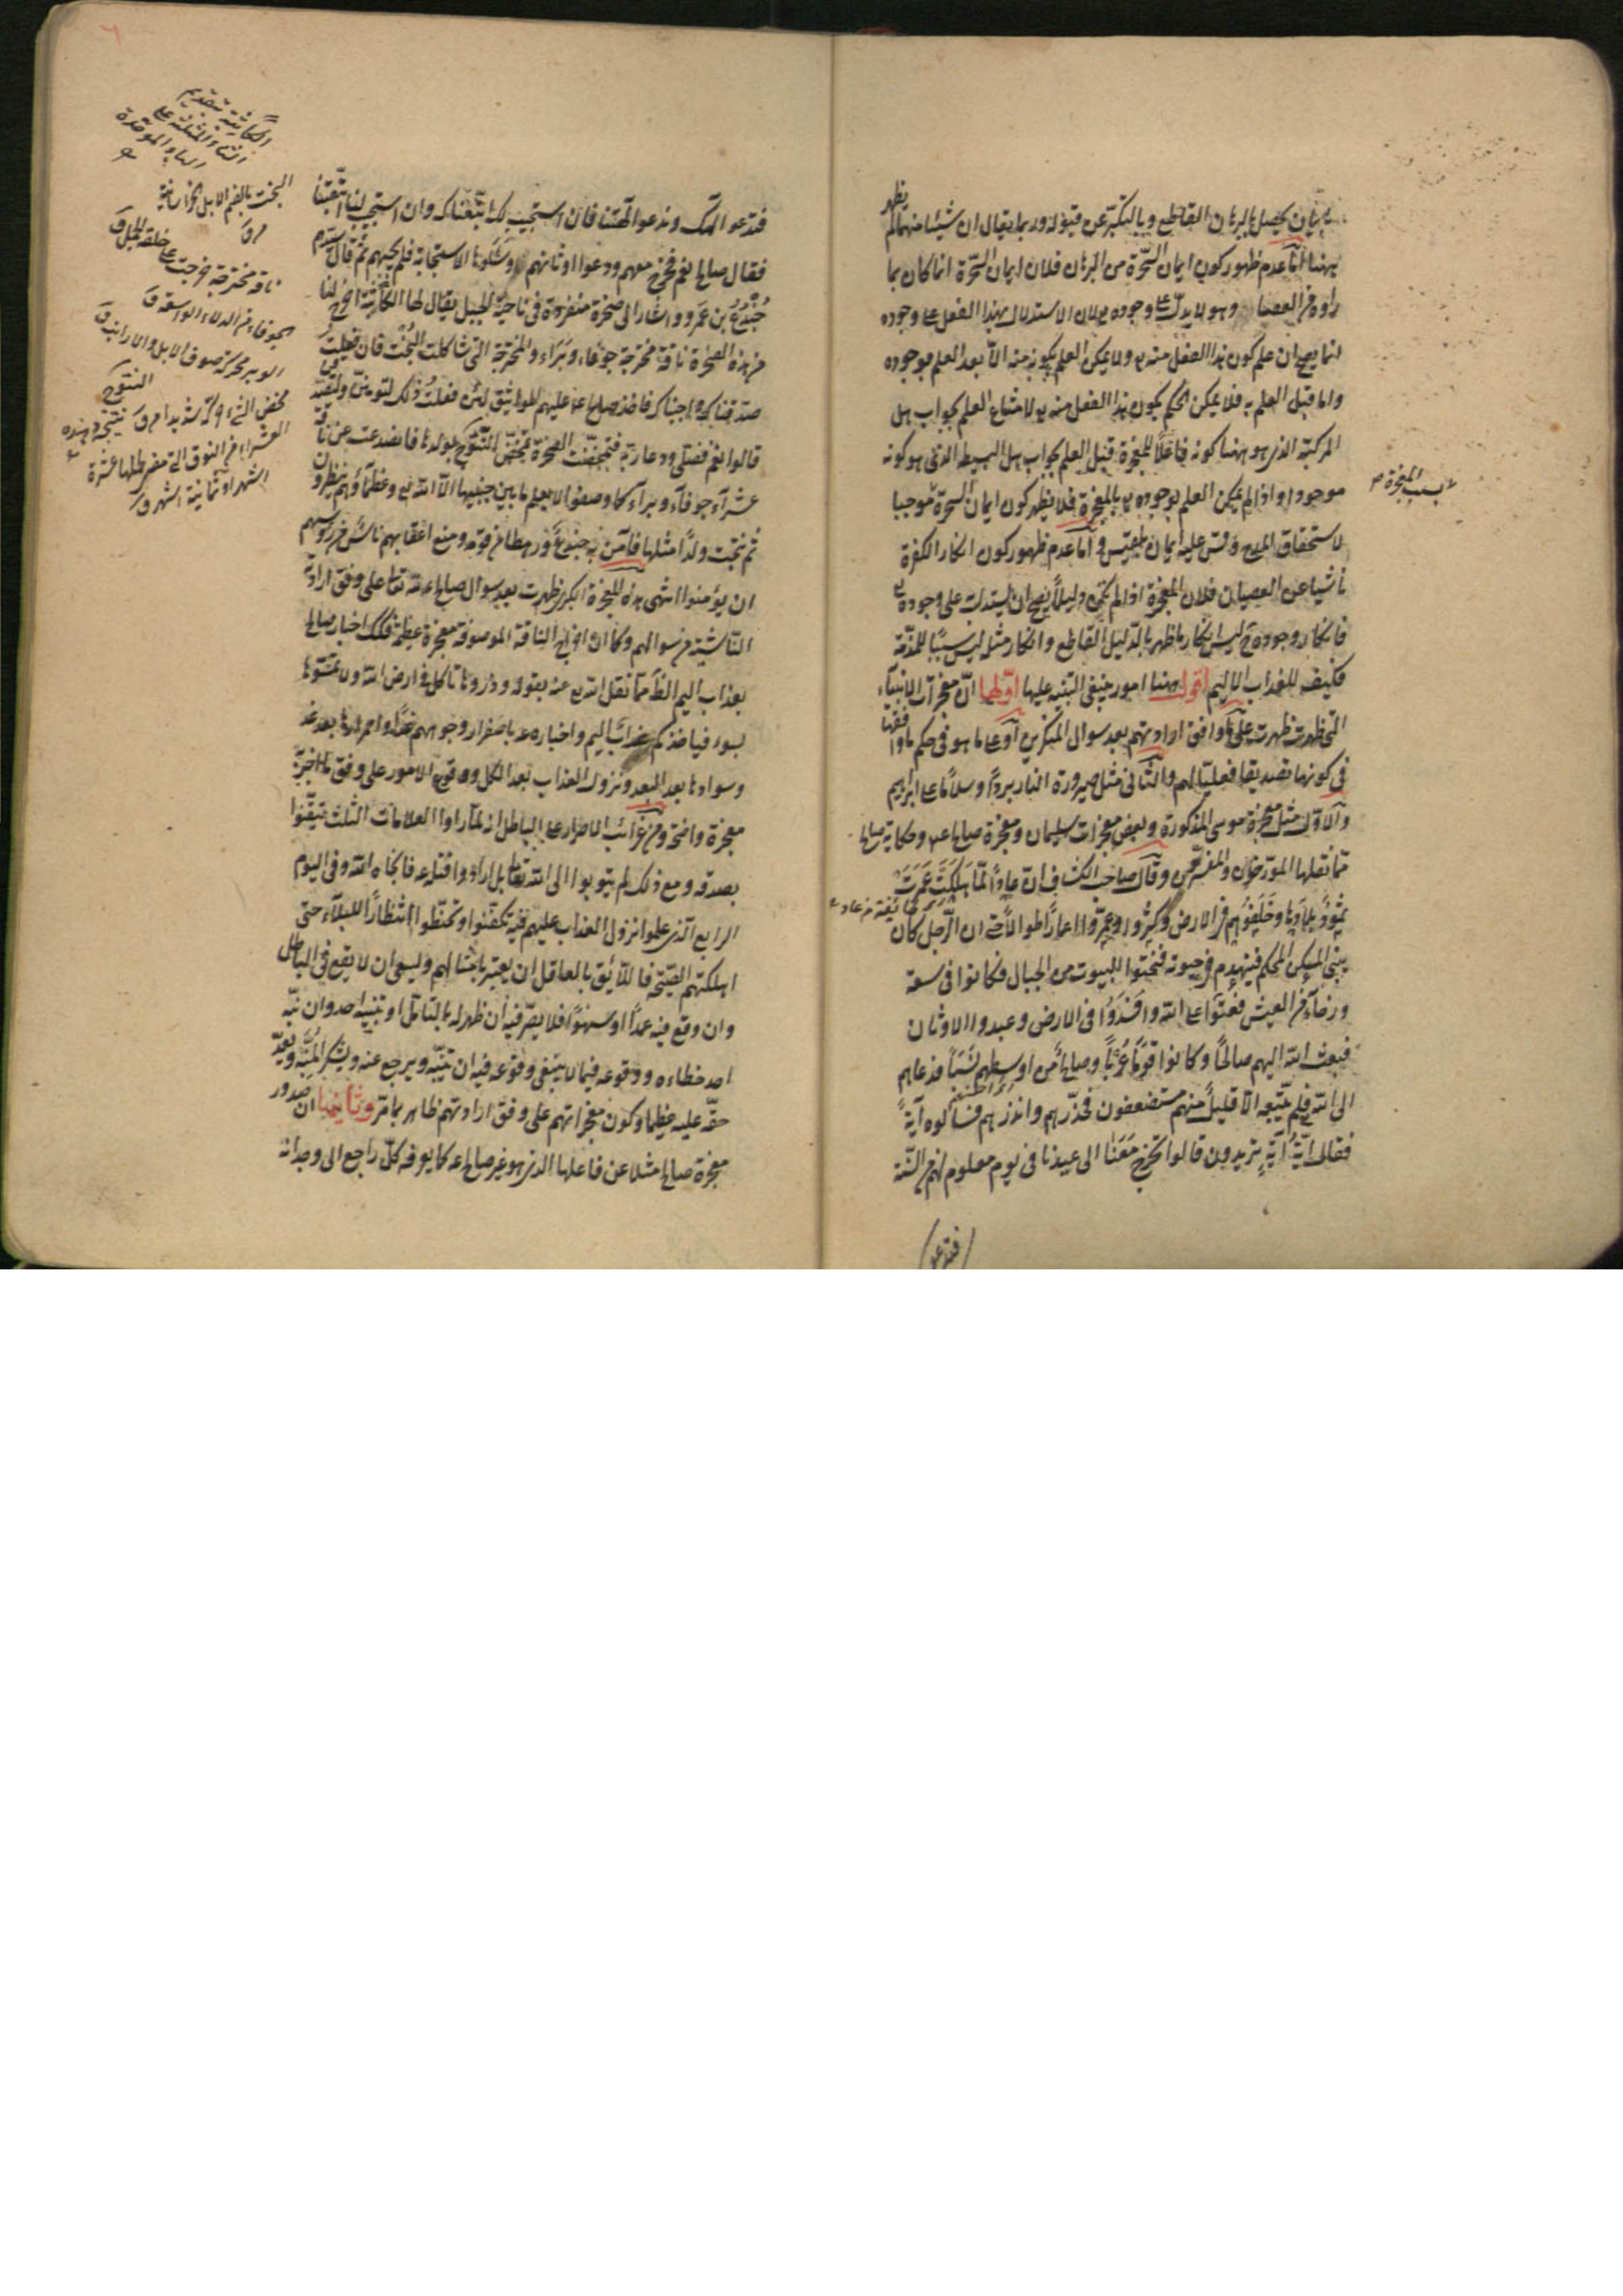 بان يحصل بالبرهان القاطع وبالتكبر عن قبوله وربما يقال ان شيئا منهما لم يظهر
ههنا اما عدم ظهور كون ايمان السحرة من البرهان فلان ايمان السحرة انما كان بما
راوه من العصا وهو لا يدل على وجوده تع لان الاستدلال بهذا الفعل على وجوده
انما يصح ان علم كون هذا الفعل منه تع ولا يمكن العلم بكونه منه الا بعد العلم بوجوده
واما قبل العلم به فلا يمكن الحكم بكون هذا الفعل منه تع لامتناع العلم بجواب هل
المركبة الذى هو ههنا كونه فاعلا للمعجزة قبل العلم بجواب هل البسيطة الذى هو كونه
موجودا واذا لم يمكن العلم بوجوده تع بالمعجزة فلا يظهر كون ايمان السحرة موجبا
بسبب المعجزة
لاستحقاق المدح وقس عليه ايمان بلقيس واما عدم ظهور كون انكار الكفرة
ناشيا عن العصيان فلان المعجزة اذا لم تكن دليلا يصح ان يستدل على وجوده تع
فانكار وجوده ح ليس انكار ما ظهر بالدليل القاطع وانكار مثل ليس سببا للمذمة
فكيف للعذاب الاليم اقول ههنا امور ينبغى التنبه عليها اولها ان معجزات الانبياء
التى ظهرت ظهرت على ما وافق ارادتهم بعد سوال المنكرين او على ما هو فى حكم ما وافقها
فى كونها تصديقا فعليا لهم والثانى مثل صيرورة النار بردا وسلاما على ابراهيم
والاول مثل معجزة موسى المذكورة وبعض معجزات سليمان ومعجزة صالح عم وحكاية صالح
مما نقلها المورخون والمفسرون وقال صاحب الكشاف ان عادا لما هلكت عمرت
ثمود بلادها وخلفوهم فى الارض وكثروا وعمروا اعمارا طوالا حتى ان الرجل كان
يبنى المسكن المحكم فينهدم فى حيوته فنحتوا البيوت من الجبال فكانوا فى سعة
ورخاء من العيش فعتوا على الله وافسدوا فى الارض وعبدوا الاوثان
فبعث الله اليهم صالحا وكانوا قوما عربا وصالح من اوسطهم نسبا فدعاهم
الى الله فلم يتبعه الا قليل منهم مستضعفون فحذرهم وانذرهم فسألوه آية
فقال اية آية تريدون قالوا تخرج معنا الى عيدنا فى يوم معلوم لهم من السنة
فتدعو
فتدعو الهك وندعو آلهتنا فان استجيب لك اتبعناك وان استجيب لنا اتبعتنا
فقال صالح نعم فخرج معهم ودعوا اوثانهم وسئلوها الاستجابة فلم يجبهم ثم قال سيدهم
جندع بن عمرو واشار الى صخرة منفردة فى ناحية الجبل يقال لها الكاثبة اخرج لنا
من هذه الصخرة ناقة مخترجة جوفاء وبراء والمخترجة التى شاكلت البخت فان فعلت
صدقناك واجبناك فاخذ صالح عم عليهم المواثيق لئن فعلت ذلك لتومنن ولتصدقن
قالوا نعم فصلى ودعا ربه فتمخضت الصخرة تمخض النتوج بولدها فانصدعت عن ناقة
عشراء جوفاء وبراء كما وصفوا لا يعلم ما بين جنبيها الا الله تع وعظماؤهم ينظرون
ثم نتجت ولدا مثلها فآمن به جندع ورهط من قومه ومنع اعقابهم ناس من رؤسهم
ان يؤمنوا انتهى هذه المعجزة الكبرى ظهرت بعد سوال صالح عم الله تعا على وفق ارادته
الناشية من سوالهم وكما ان اخراج الناقة الموصوفة معجزة عظيمة فكذلك اخبار صالح
بعذاب اليم الظ مما نقل الله تع عنه بقوله وذروها تاكل فى ارض الله ولا تمسوها
بسوء فياخذكم عذاب اليم واخباره عم باصفرار وجوههم غدا واحمرارها بعد غد
وسوادها بعد البعد ونزول العذاب بعد الكل ووقوع الامور على وفق ما اخبره
معجزة واضحة ومن غرائب الاصرار على الباطل انهم لما راوا العلامات الثلث تيقنوا
بصدقه ومع ذلك لم يتوبوا الى الله تعا بل ارادوا قتله عم فانجاه الله وفى اليوم
الرابع الذى علموا نزول العذاب عليهم فيه تكفنوا وتحنطوا انتظارا للبلاء حتى
اهلكتهم الصيحة فاللائق بالعاقل ان يعتبر بامثالهم ويسعى ان لا يقع فى الباطل
وان وقع فيه عمدا او سهوا فلا يصر فيه ان ظهر له بالتامل او بتنبيه احد وان نبه
احد خطاءه ووقوعه فيما لا ينبغى وقوعه فيه ان يتنبه ويرجع عنه ويشكر المنبه ويعد
حقه عليه عظيما وكون معجزاتهم على وفق ارادتهم ظاهر بما مر وثانيها ان صدور
معجزة صالح مثلا عن فاعلها الذى هو غير صالح عم كما يعرفه كل راجع الى وجدانه
الكاثبة بتقديم
الثاء المثلثة على
الباء الموحدة
البخت بالضم الابل الخراسانية
ق
ناقة مخترجة خرجت على خلقة الجمل ق
الجوفاء من الدلاء الواسعة ق
الوبر محركة صوف الابل والارانب ق
النتوج
العشراء من النوق التى مضى لحملها عشرة
اشهر او ثمانية اشهر ق